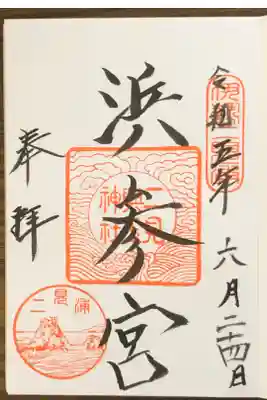 令和五年
六月二十四日
浜参宮
二見
神社
奉拝
二見浦